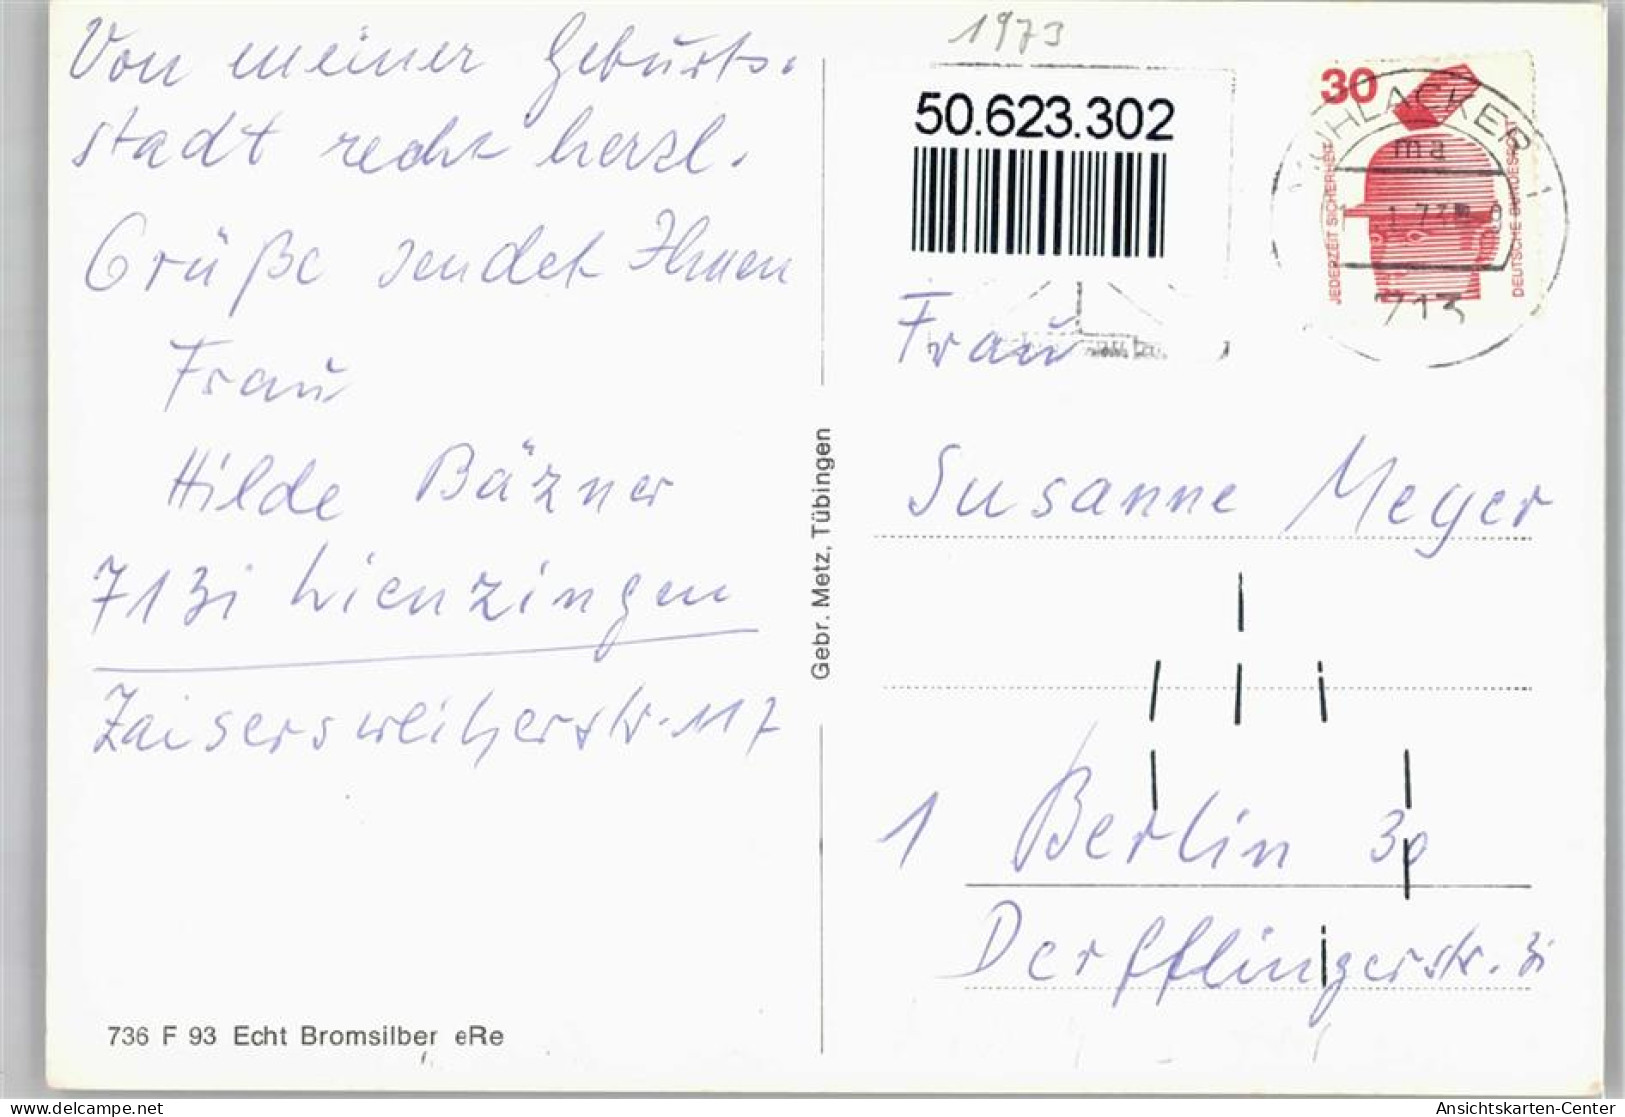 Von meiner Geburts-
stadt recht herzl.
Grüße sendet Ihnen
Frau
Hilde Bäzner
7131 Lienzingen
Zaisersweiherstr. 117
736 F 93 Echt Bromsilber eRe
Gebr. Metz, Tübingen
1973
50.623.302
30
JEDERZEIT SICHERHEIT
DEUTSCHE BUNDESPOST
MÜHLACKER 1
ma
713
Frau
Susanne Meyer
1 Berlin 30
Derfflingerstr.
Ansichtskarten-Center